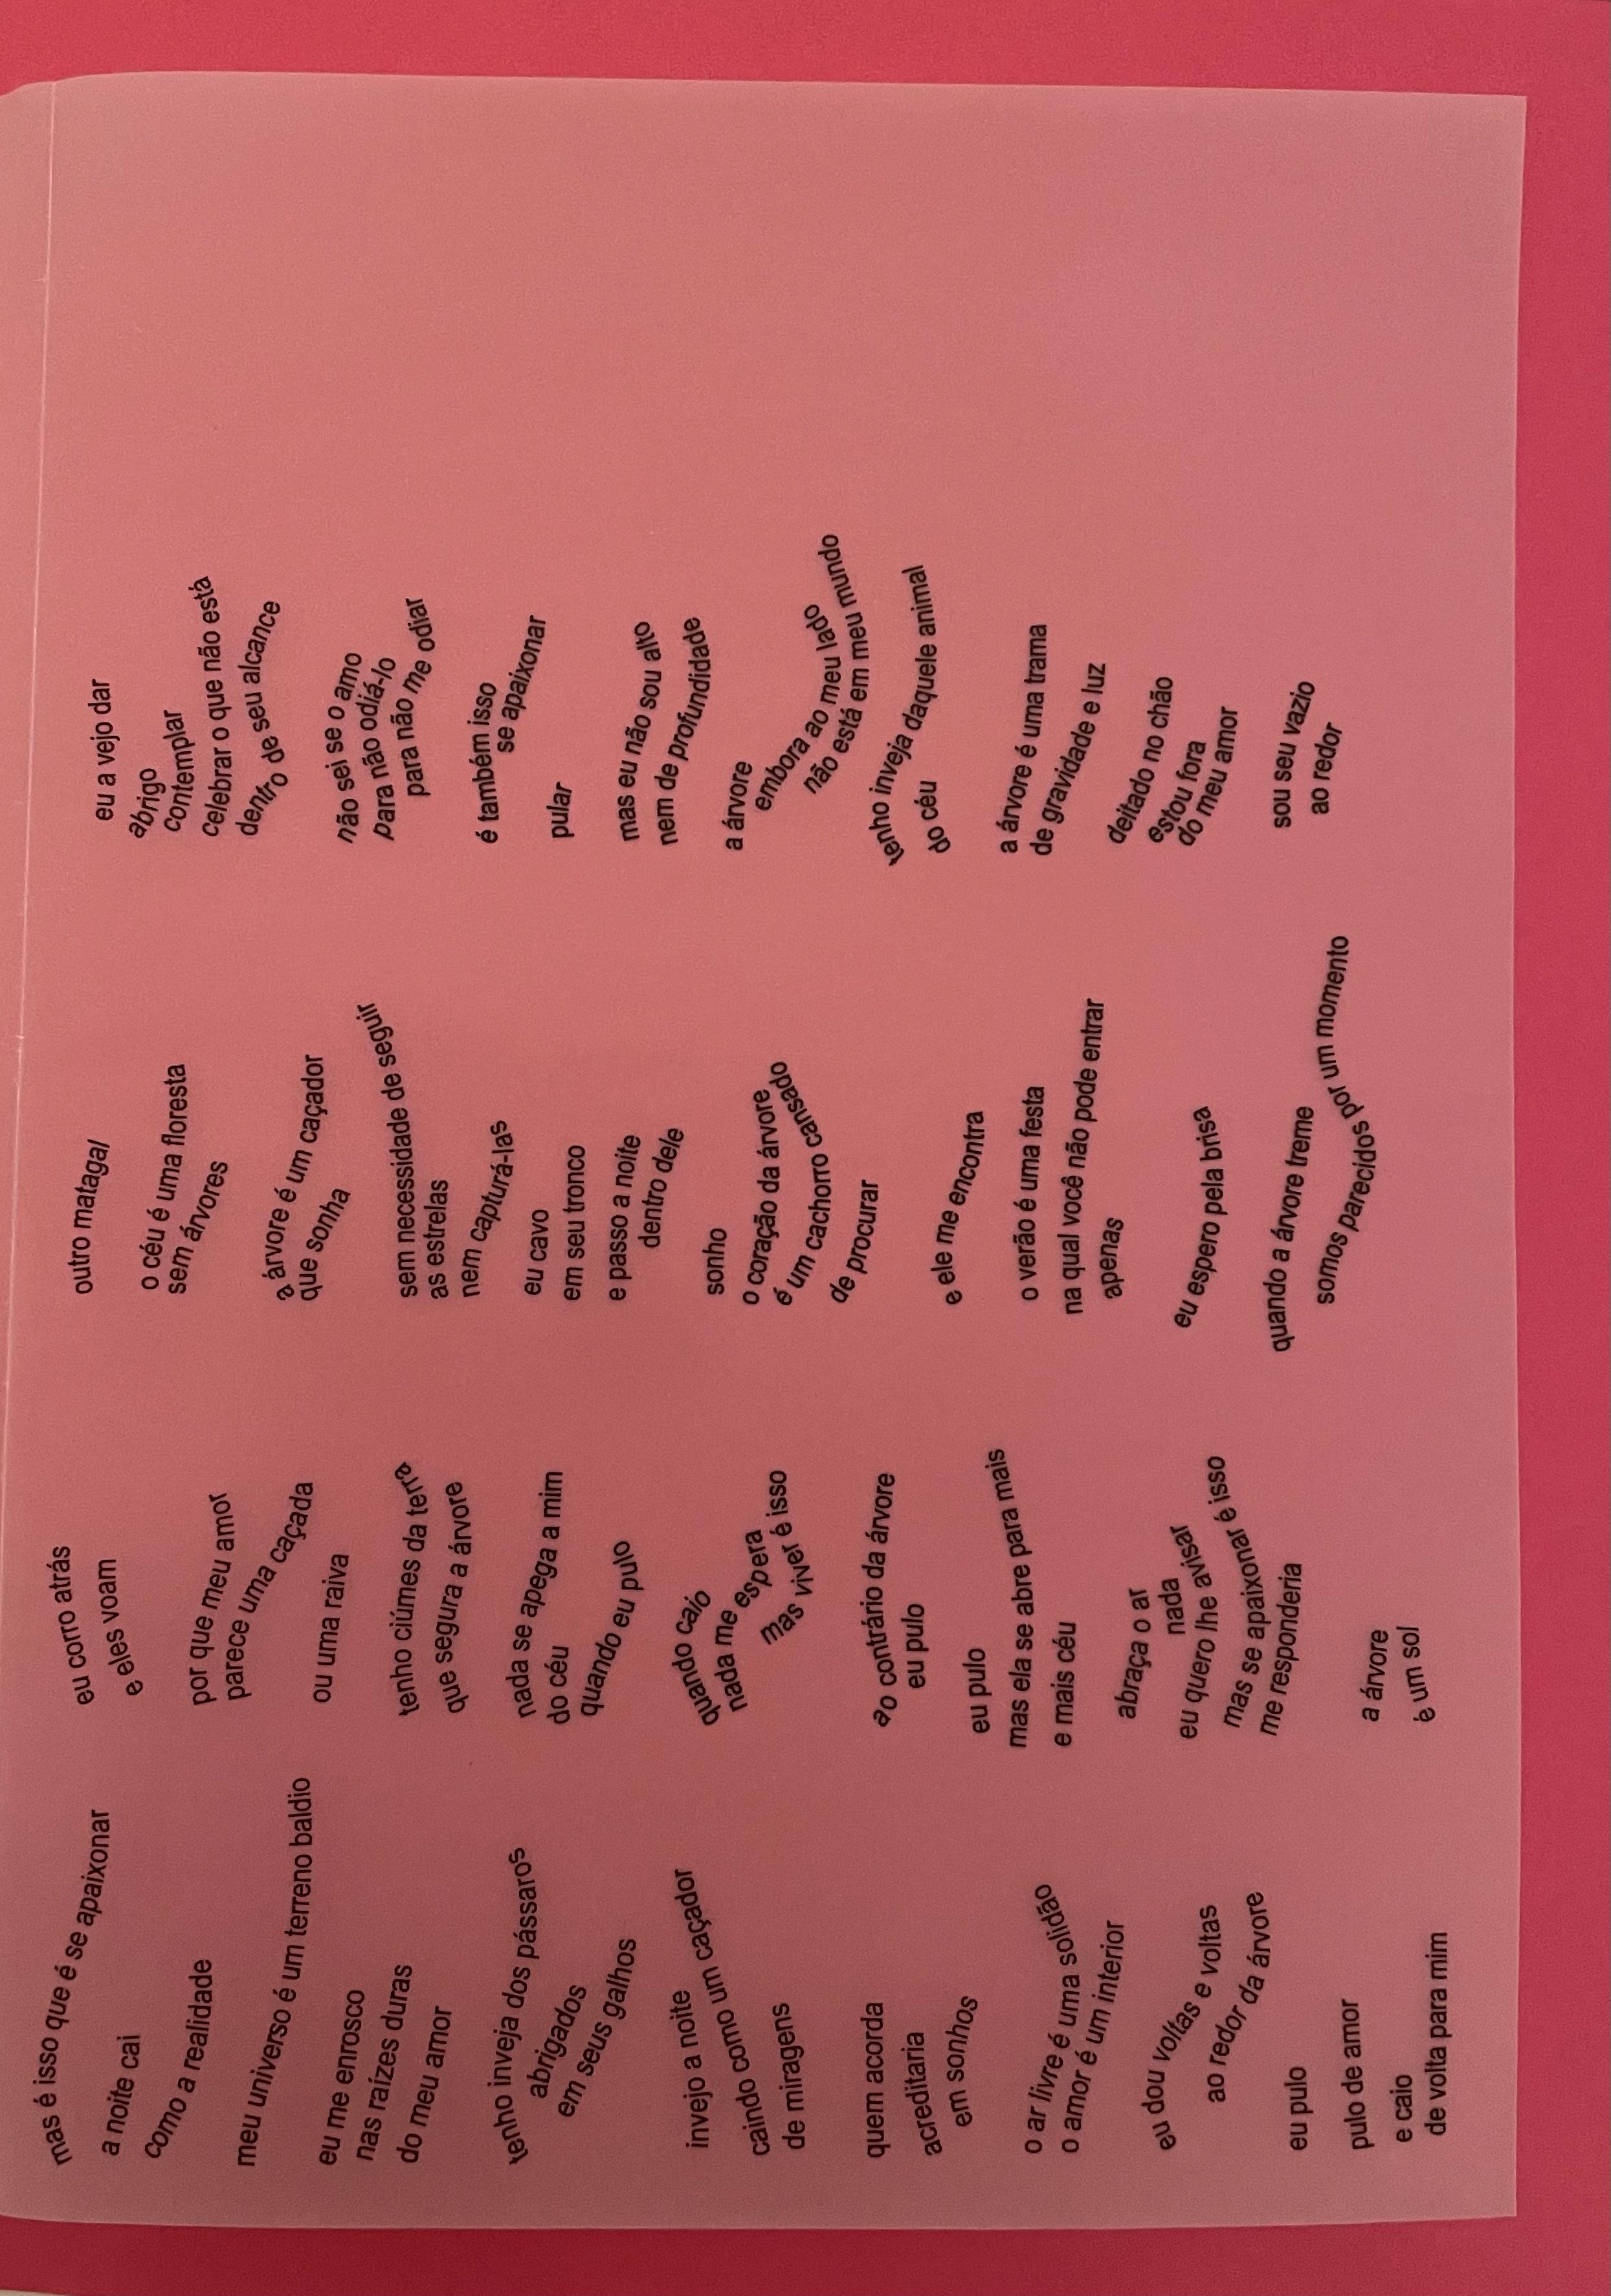 mas é isso que é se apaixonar
a noite cai
como a realidade
meu universo é um terreno baldio
eu me enrosco
nas raízes duras
do meu amor
tenho inveja dos pássaros
abrigados
em seus galhos
invejo a noite
caindo como um caçador
de miragens
quem acorda
acreditaria
em sonhos
o ar livre é uma solidão
o amor é um interior
eu dou voltas e voltas
ao redor da árvore
eu pulo
pulo de amor
e caio
de volta para mim
eu corro atrás
e eles voam
por que meu amor
parece uma caçada
ou uma raiva
tenho ciúmes da terra
que segura a árvore
nada se apega a mim
do céu
quando eu pulo
quando caio
nada me espera
mas viver é isso
ao contrário da árvore
eu pulo
eu pulo
mas ela se abre para mais
e mais céu
abraça o ar
nada
eu quero lhe avisar
mas se apaixonar é isso
me responderia
a árvore
é um sol
outro matagal
o céu é uma floresta
sem árvores
a árvore é um caçador
que sonha
sem necessidade de seguir
as estrelas
nem capturá-las
eu cavo
em seu tronco
e passo a noite
dentro dele
sonho
o coração da árvore
é um cachorro cansado
de procurar
e ele me encontra
o verão é uma festa
na qual você não pode entrar
apenas
eu espero pela brisa
quando a árvore treme
somos parecidos por um momento
eu a vejo dar
abrigo
contemplar
celebrar o que não está
dentro de seu alcance
não sei se o amo
para não odiá-lo
para não me odiar
é também isso
se apaixonar
pular
mas eu não sou alto
nem de profundidade
a árvore
embora ao meu lado
não está em meu mundo
tenho inveja daquele animal
do céu
a árvore é uma trama
de gravidade e luz
deitado no chão
estou fora
do meu amor
sou seu vazio
ao redor